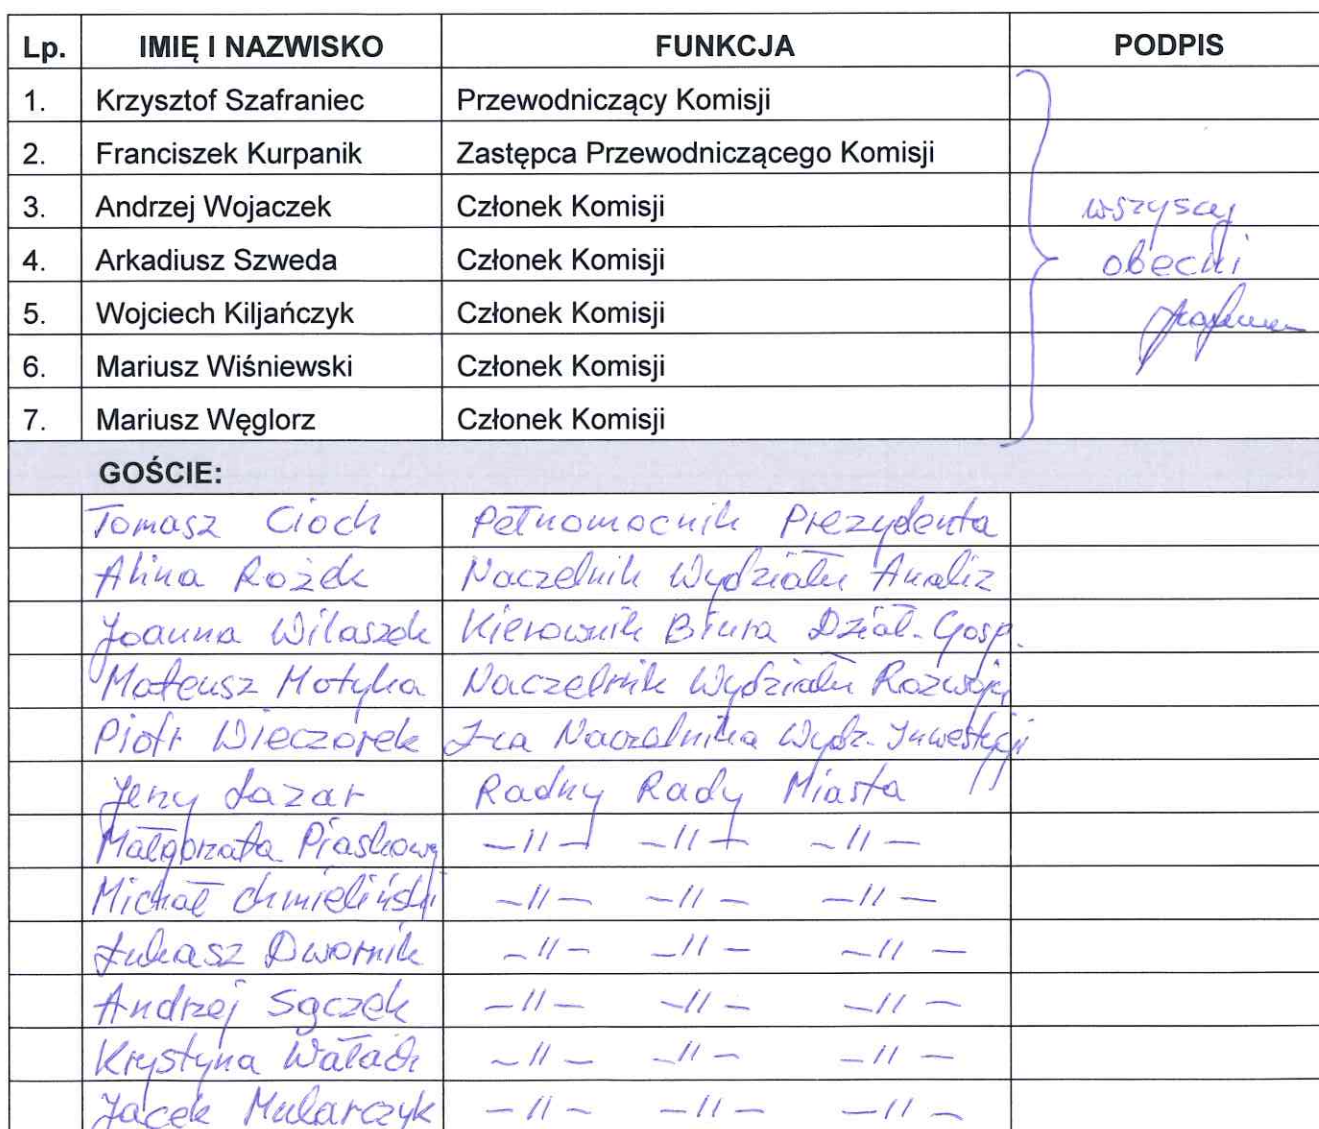 Lp. IMIĘ I NAZWISKO FUNKCJA PODPIS
1. Krzysztof Szafraniec Przewodniczący Komisji
2. Franciszek Kurpanik Zastępca Przewodniczącego Komisji
3. Andrzej Wojaczek Członek Komisji wszyscy
4. Arkadiusz Szweda Członek Komisji obecni
5. Wojciech Kiljańczyk Członek Komisji
6. Mariusz Wiśniewski Członek Komisji
7. Mariusz Węglorz Członek Komisji
GOŚCIE:
Tomasz Cioch Pełnomocnik Prezydenta
Alina Rożek Naczelnik Wydziału Analiz
Joanna Wilaszek Kierownik Biura Dział. Gosp.
Mateusz Motyka Naczelnik Wydziału Rozwoju
Piotr Wieczorek Z-ca Naczelnika Wydz. Inwestycji
Jerzy Łazar Radny Rady Miasta
Małgorzata Piaskowy –//– –//– –//–
Michał Chmieliński –//– –//– –//–
Łukasz Dwornik –//– –//– –//–
Andrzej Sączek –//– –//– –//–
Krystyna Wałach –//– –//– –//–
Jacek Mularczyk –//– –//– –//–